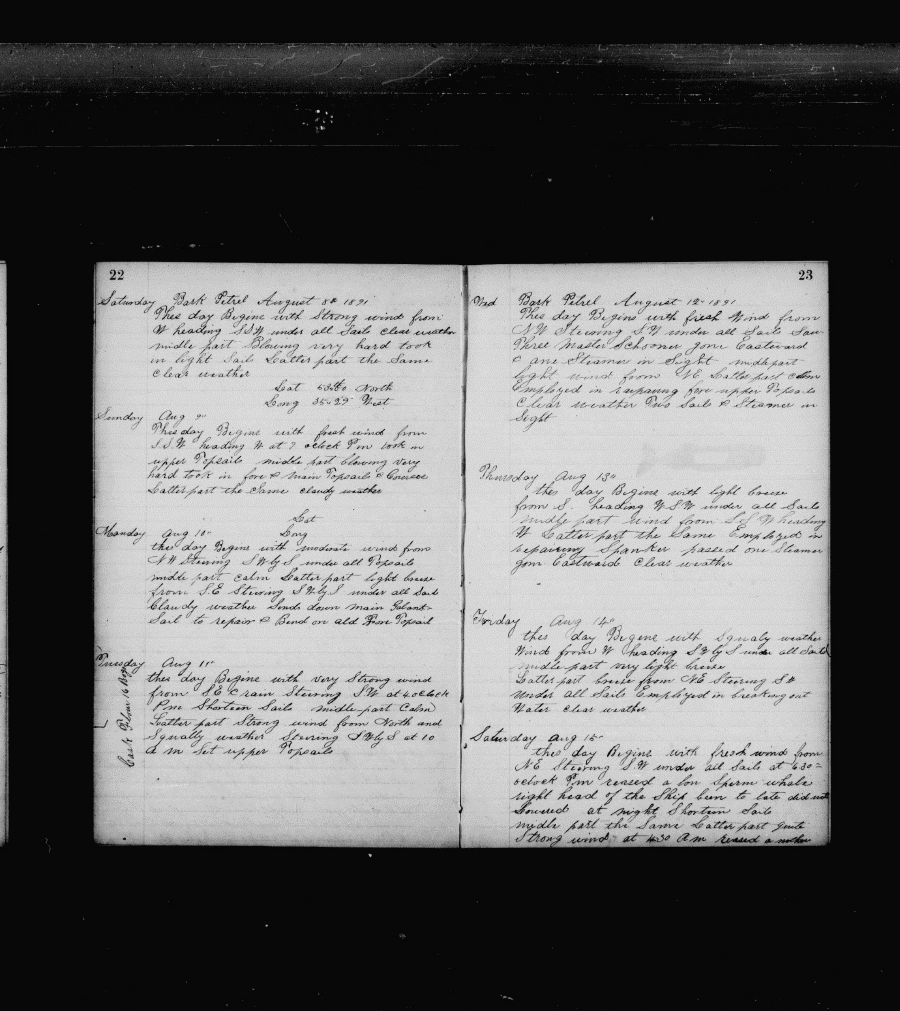 22
Saturday Bark Petrel August 8th 1891
This day Begins with Strong wind from
W heading SSW under all Sails clear weather
middle part Blowing very hard took
in light Sails Latter part the Same
Clear weather
Lat North
Long 35-29 West
Sunday Aug 9"
This day Begins with fresh wind from
S.S.W. heading W at 7 oclock Pm took in
upper Topsails middle part blowing very
hard took in fore & main Topsails & Courses
Latter part the Same cloudy weather
Lat
Long
Monday Aug 10"
this day Begins with moderate wind from
NW Steering SW by S under all Topsails
middle part calm Latter part light breese
from S.E. Steering SW by S under all Sails
Cloudy weather Send down main Galant
Sail to repair & Bend on old Fore Topsail
Tuesday Aug 11"
this day Begins with very Strong wind
from SE & rain Steering SW at 4 oclock
Pm Shorten Sails middle part Calm
Latter part Strong wind from North and
Squally weather Steering SW by S at 10
A m Set upper Topsails
Cask Flour 16
23
Wed Bark Petrel August 12" 1891
This day Begins with fresh Wind from
NW Steering SW under all Sails Saw
Three Master Schooner gom Eastward
& one Steamer in Sight midle part
light wind from NE Latter part calm
Employed in repairing fore upper Topsails
Clear weather Two Sails & Steamer in
Sight
Thursday Aug 13"
this day Begins with light breese
from S. heading WSW under all Sails
midle part wind from SSW heading
W Latter part the Same Employed in
repairing Spanker passed one Steamer
gom Eastward clear weather
Friday Aug 14"
this day Begins with Squaly weather
Wind from W heading SW by S under all Sails
midle part very light breese
Latter part breese from NE Steering SW
under all Sails Employed in breaking out
Water clear weather
Saturday Aug 15"
this day Begins with fresh wind from
NE Steering SW under all Sails at 6.30
oclock Pm reased a lon Sperm whale
right head of the Ship been to late did not
Lowered at night Shorten Sails
midle part the Same Latter part quite
Strong wind at 4.30 Am reased a